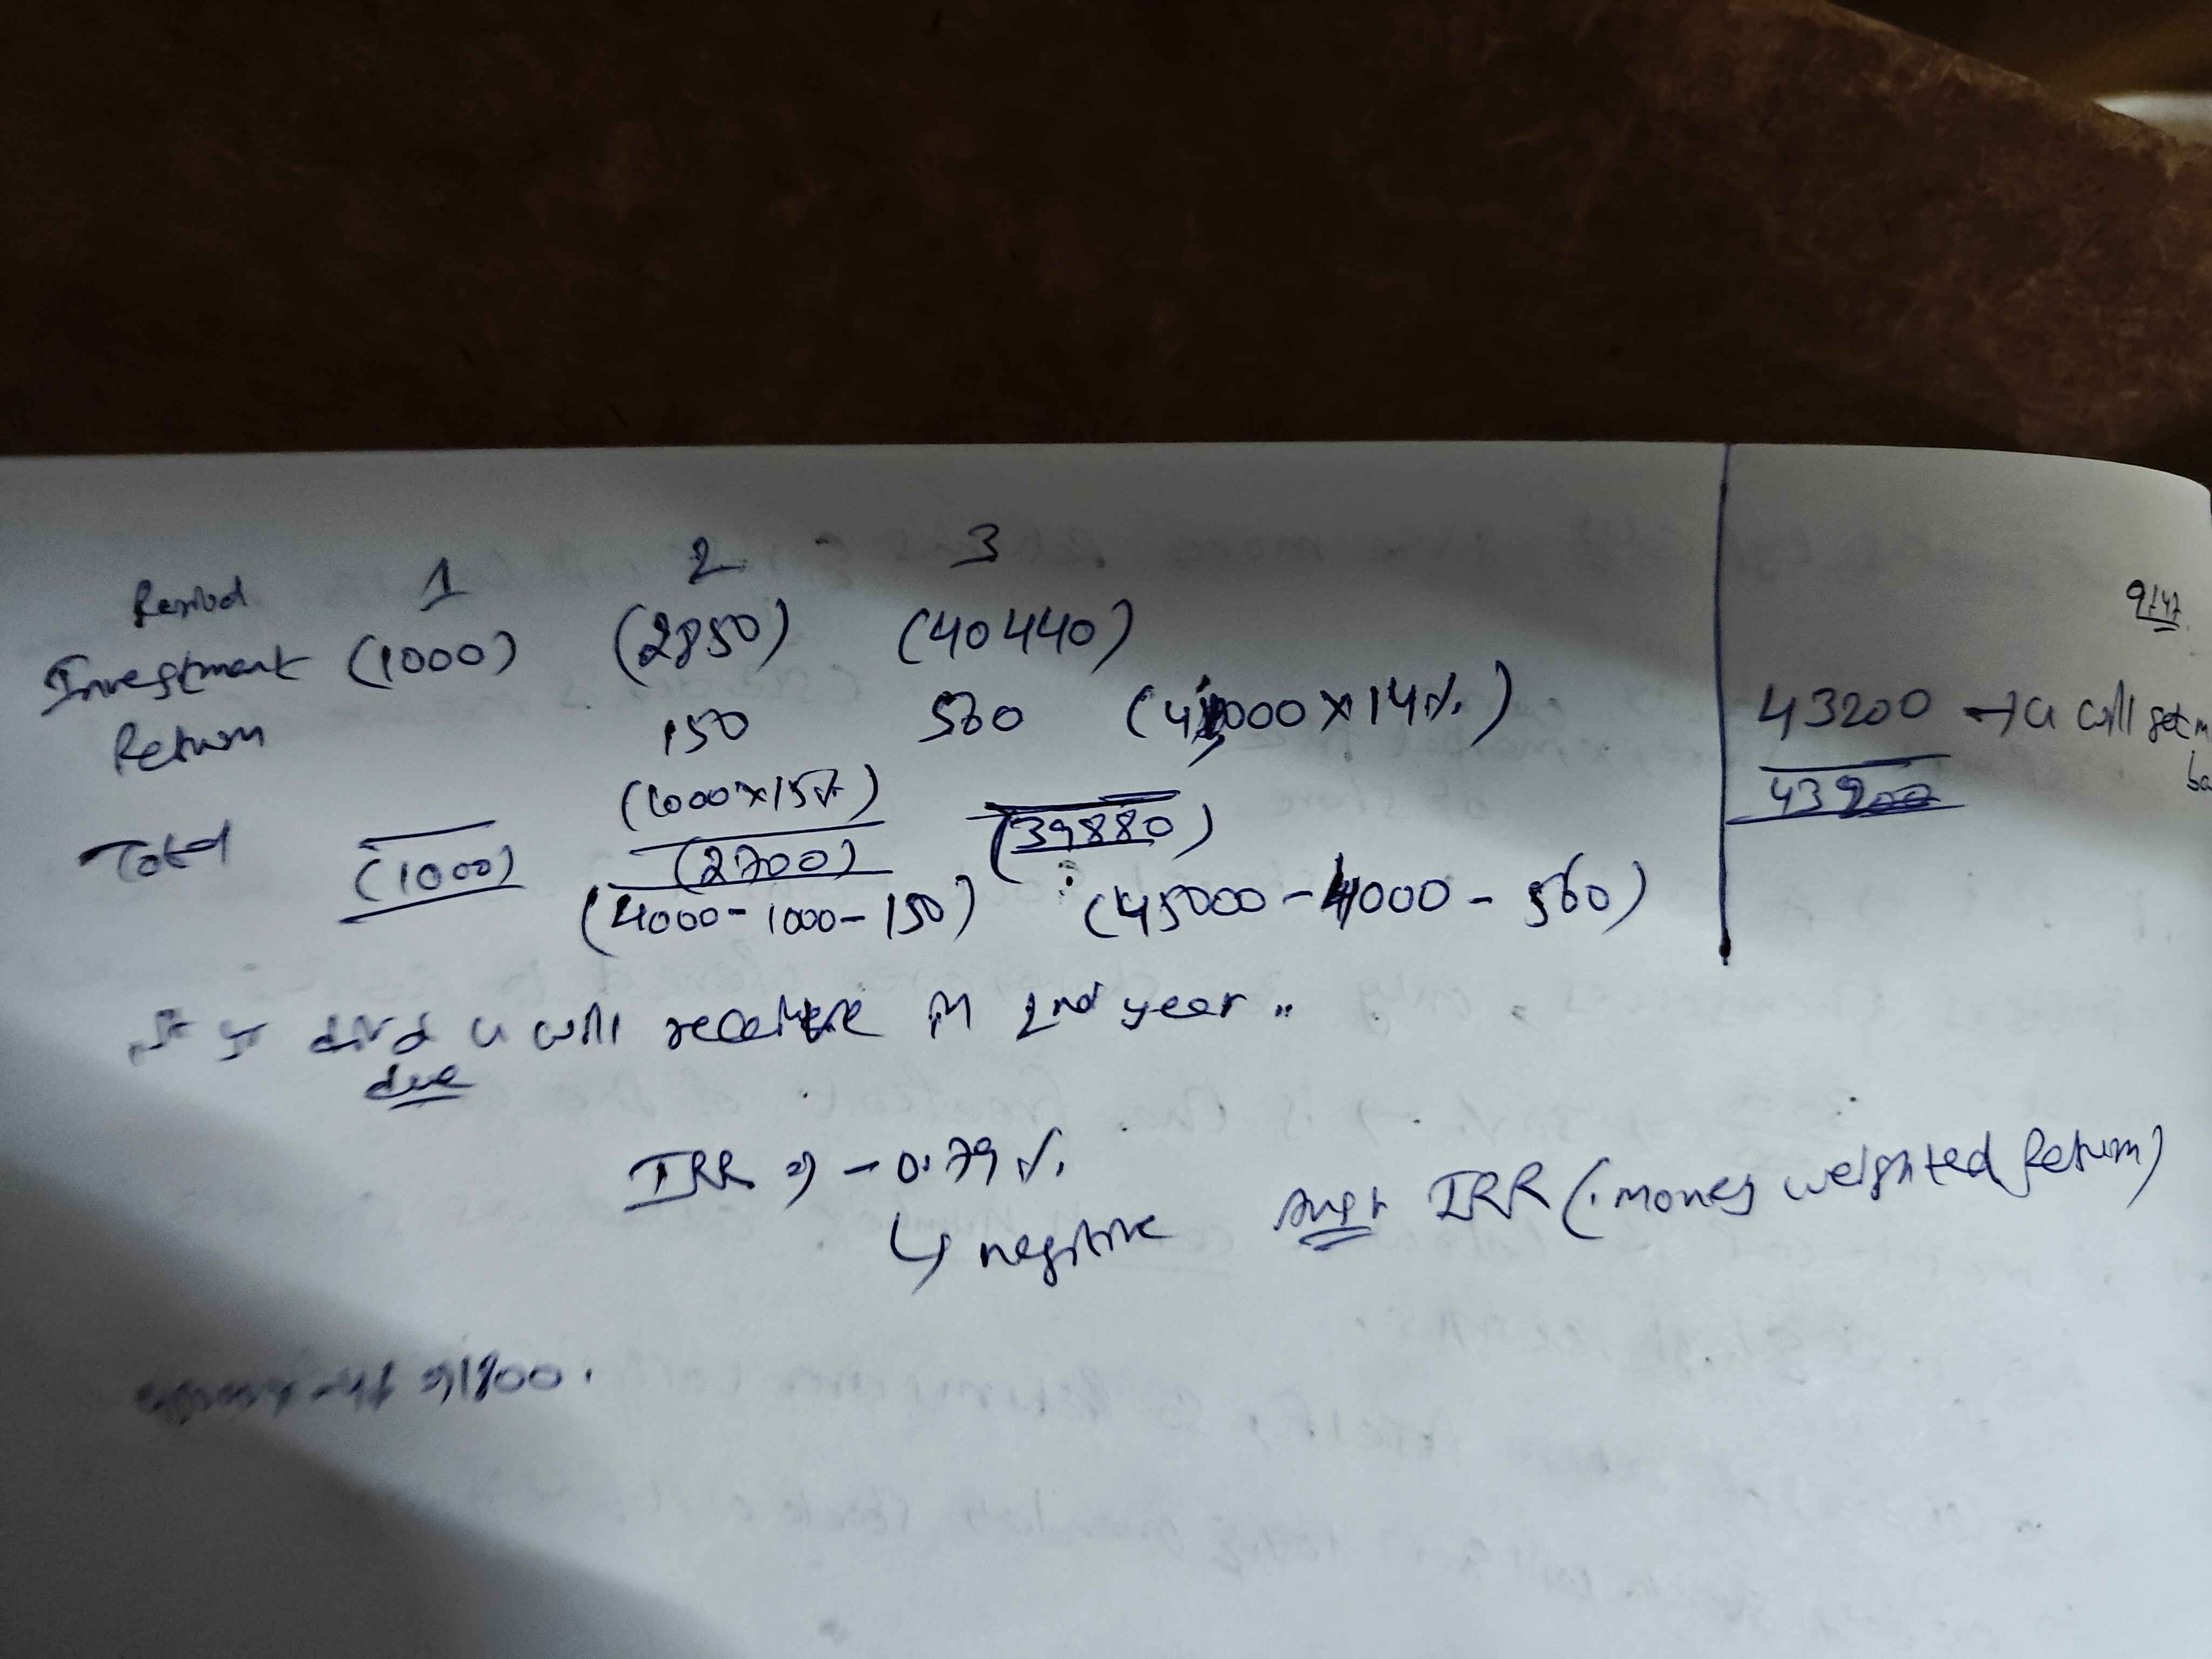 Period 1 2 3
Investment (1000) (2850) (40440)
Return 150 560 (4000 x 14%)
(1000 x 15%)
Total (1000) (2700) (39880)
(4000 - 1000 - 150) (45000 - 4000 - 560)
9147
43200 → u will get
43200
div d u will receive in 2nd year ..
due
IRR ⇒ -0.79%.
↳ negitive
IRR (money weighted Return)
1800.